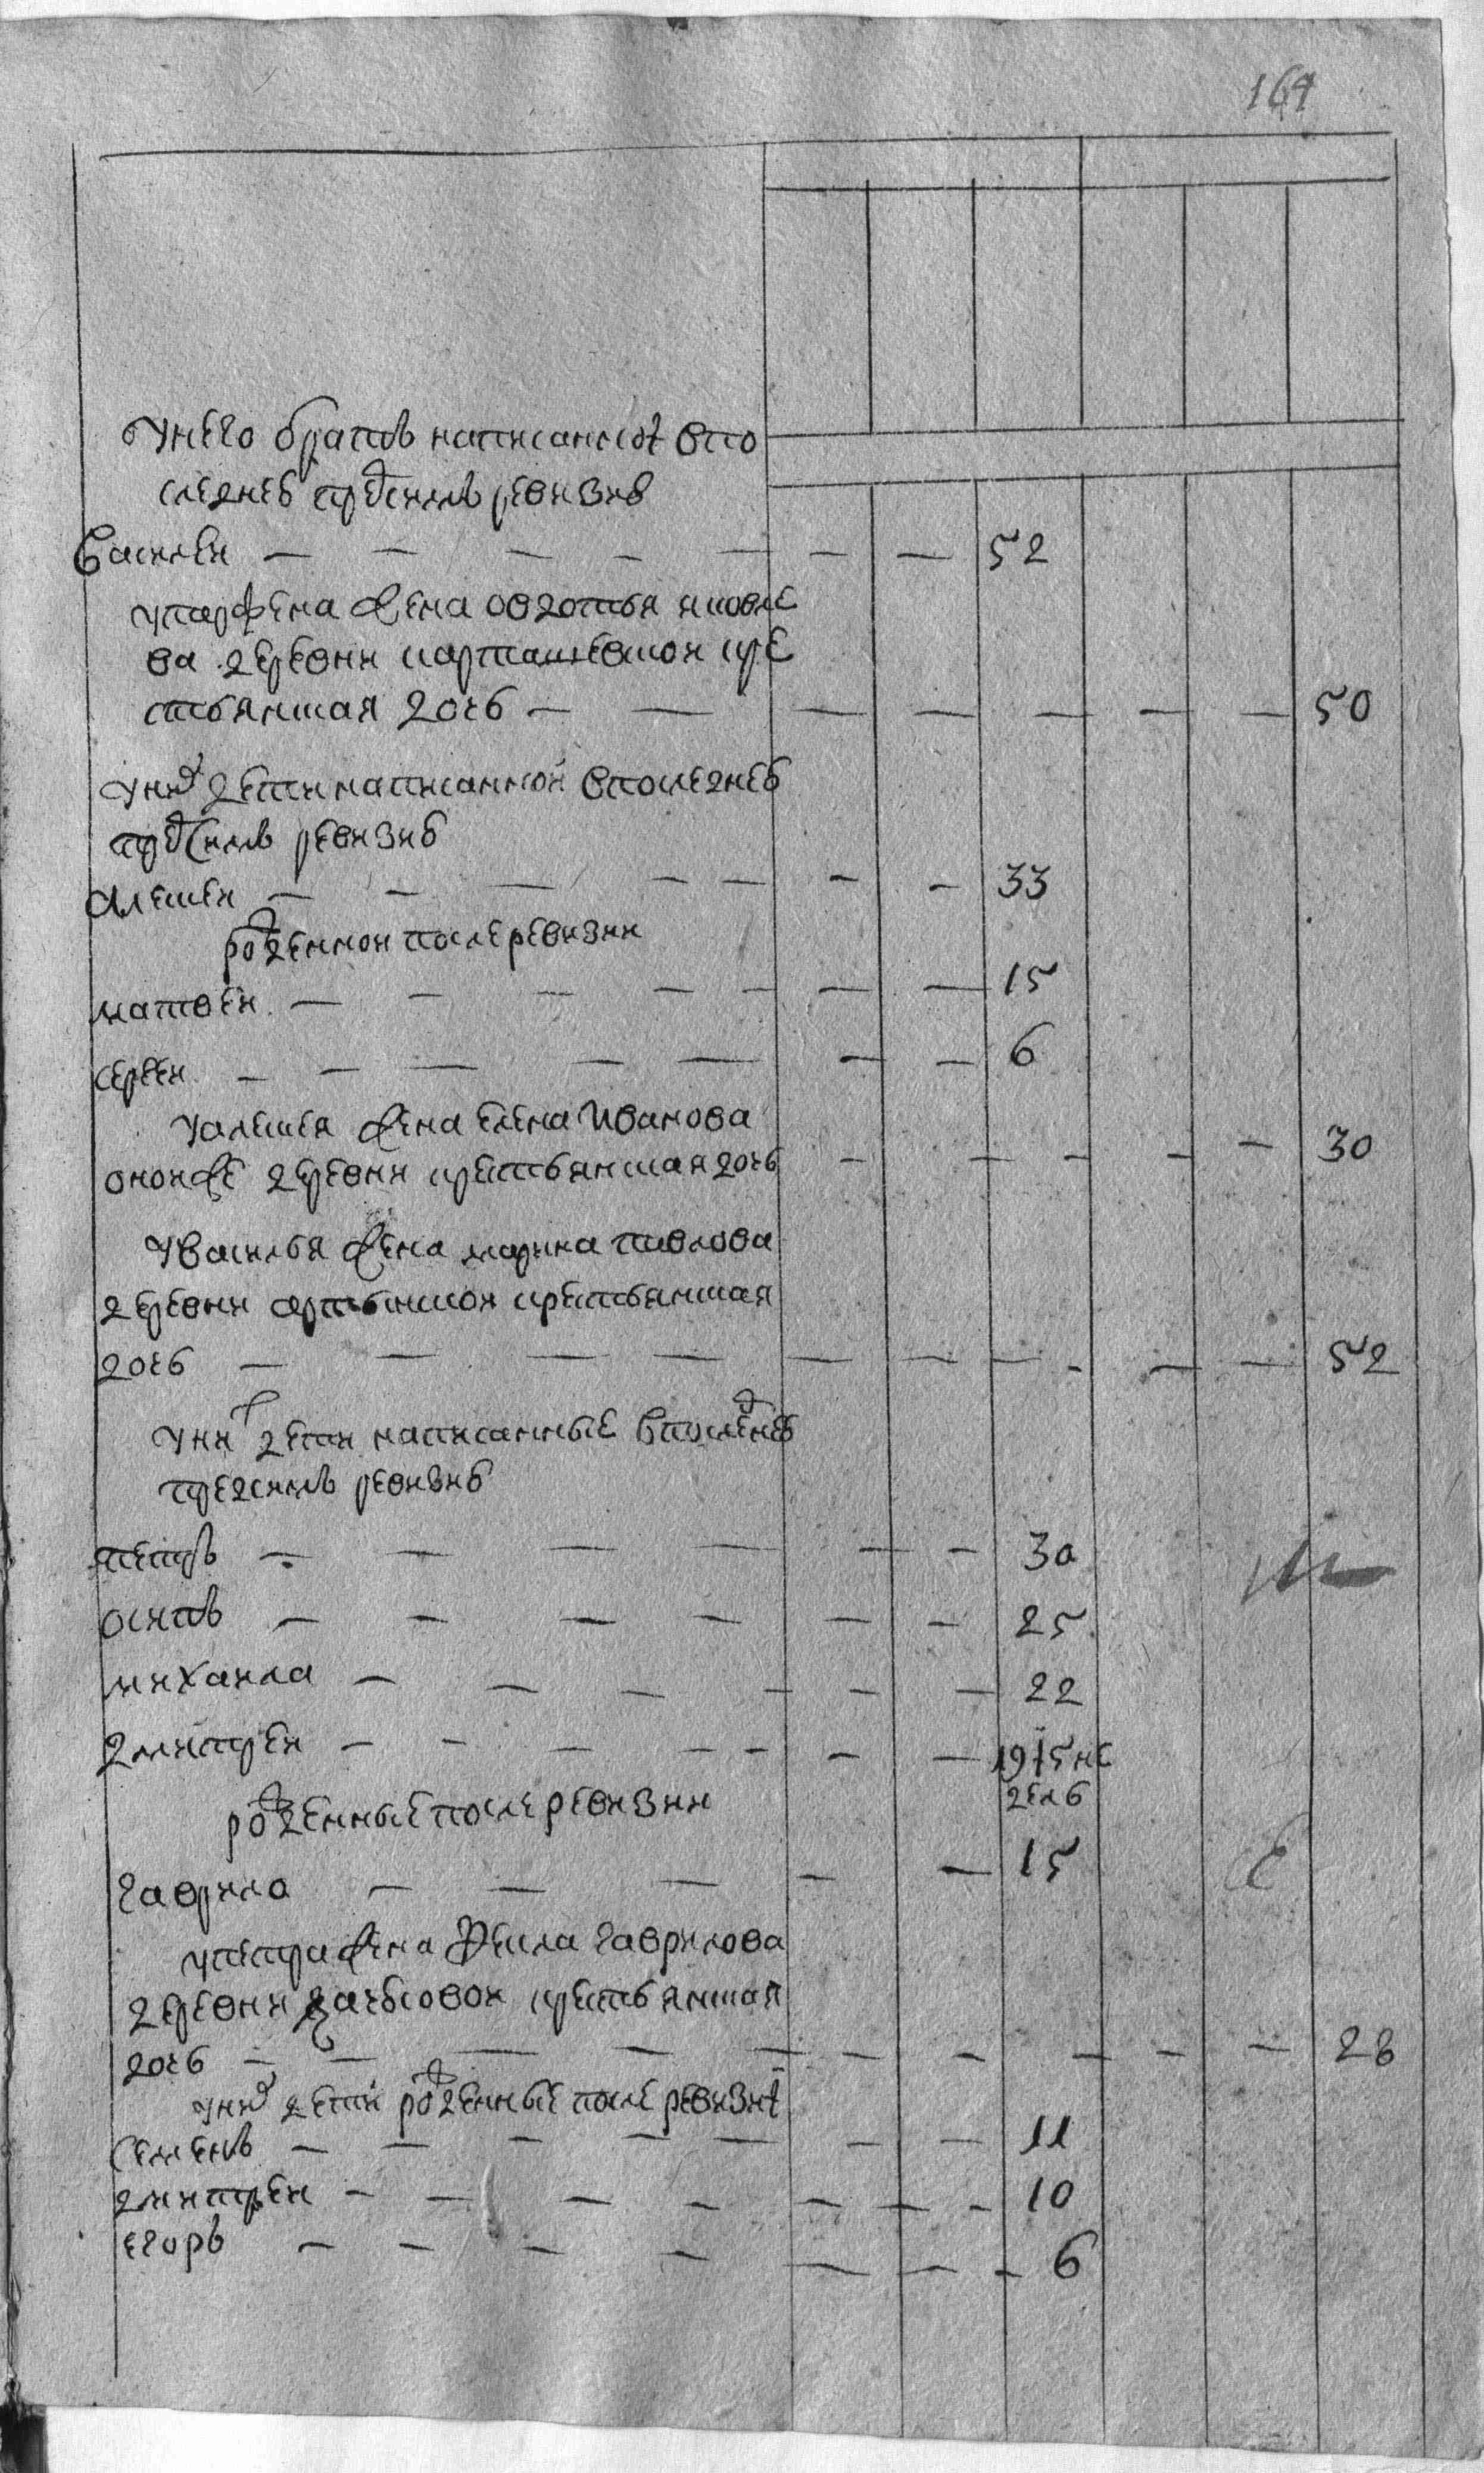 164
у него братъ написанной в по
следнеѣ пред симъ ревизиѣ
Василеи — — — — — — — 52
у парфена жена овдотья яковле
ва деревни карташевской кре
стьянская дочь — — — — — — — 50
у них дети написанной в последнеѣ
пред симъ ревизиѣ
Алексеи — — — — — — — 33
рожденной после ревизии
матвеи — — — — — — — 15
сергеи — — — — — — — 6
у алексея жена елена Иванова
оной же деревни крестьянская дочь — — — — — 30
у василья жена марина павлова
деревни крестьянская
дочь — — — — — — — — — — 52
у них дети написанные в последнеѣ
пред симъ ревизиѣ
петръ — — — — — — 30
осипъ — — — — — — 25
михаила — — — — — — 22
дмитреи — — — — — — — 19 / 5 не
дель
рожденные после ревизии
гаврила — — — — — 15
у петра жена Фекла гаврилова
деревни крестьянская
дочь — — — — — — — — — — 28
у них дети рожденные после ревизии
Семенъ — — — — — — — 11
дмитреи — — — — — — — 10
егоръ — — — — — — — 6